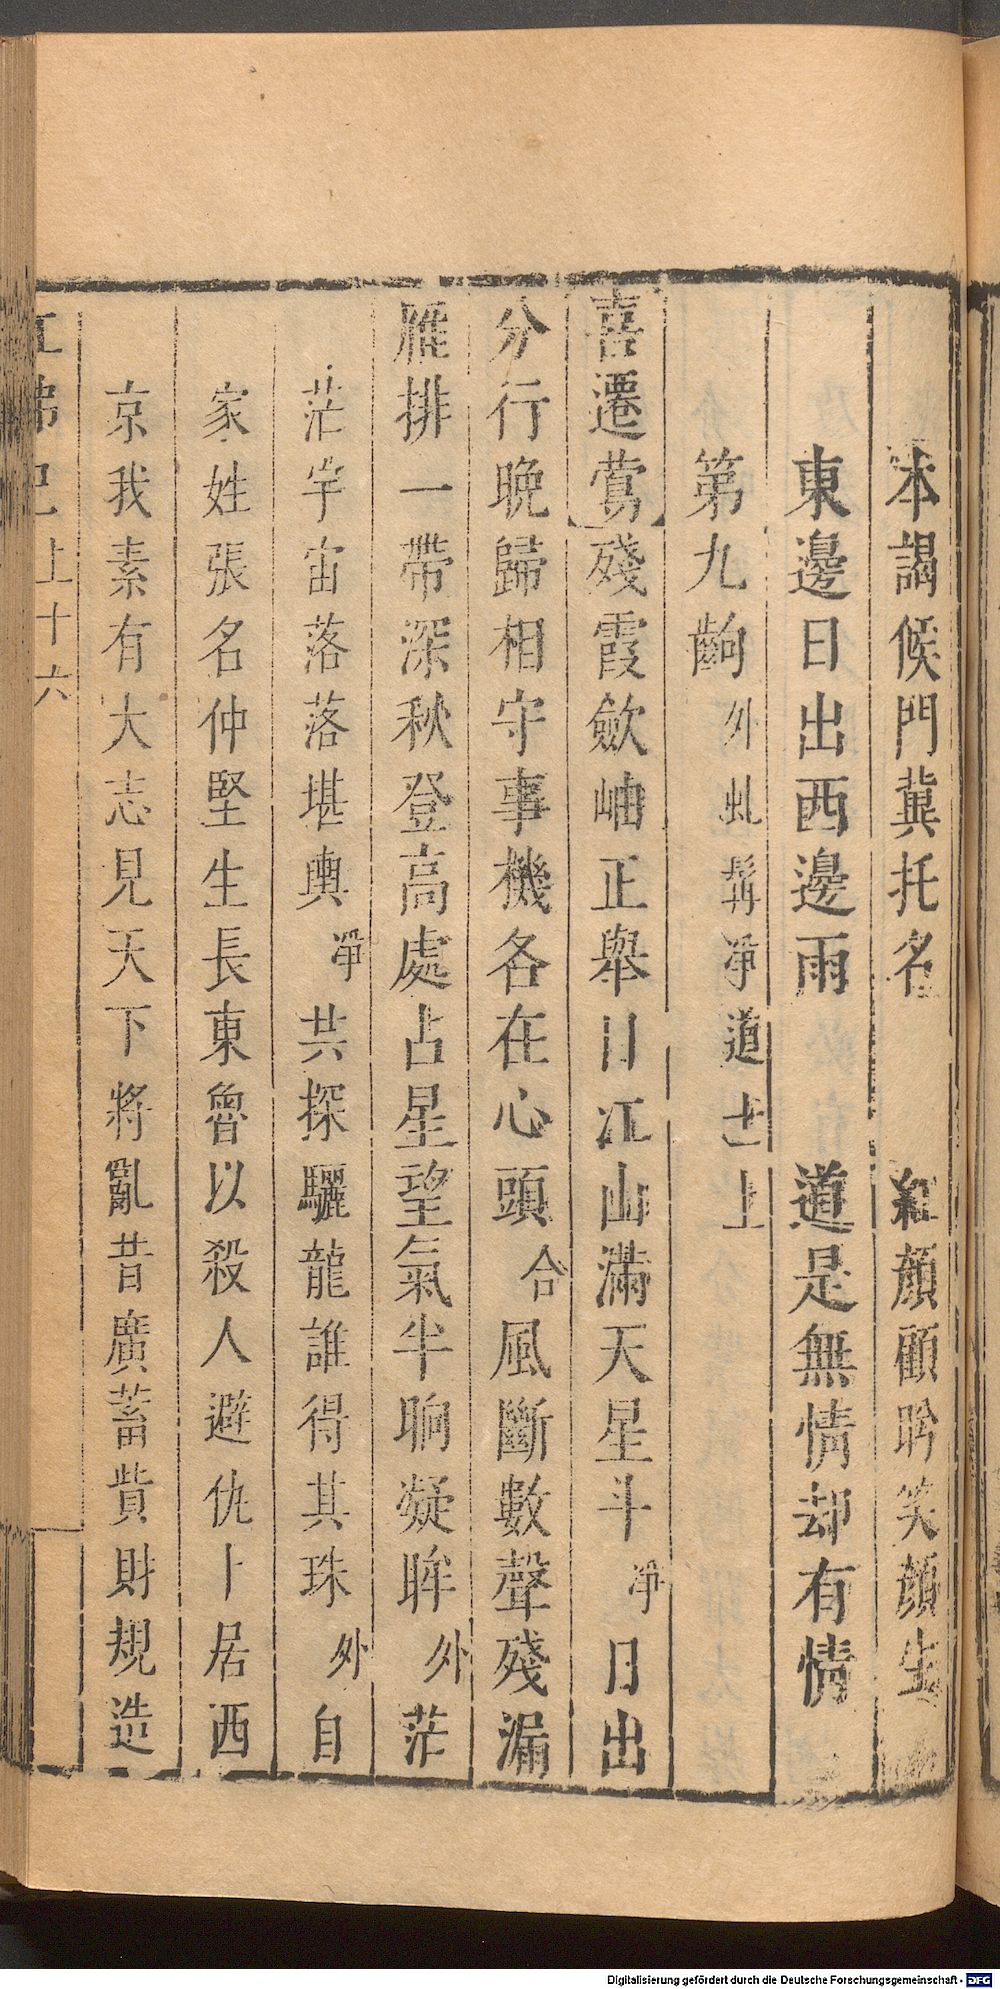 本謁候門冀托名　紅顔顧盻笑顔生
東邊日出西邊雨　道是無情却有情
第九齣 外虬髯凈道士上
喜遷鶯 殘霞歛岫正舉目江山滿天星斗 凈 日出
分行晚歸相守事機各在心頭 合 風斷數聲殘漏
雁排一帶深秋登高處占星望氣半晌凝眸 外 茫
茫宇宙落落堪輿 凈 共探驪龍誰得其珠 外 自
家姓張名仲堅生長東魯以殺人避仇卜居西
京我素有大志見天下將亂昔廣蓄貲財規造
紅拂記 上 十六
Digitalisierung gefördert durch die Deutsche Forschungsgemeinschaft - DFG